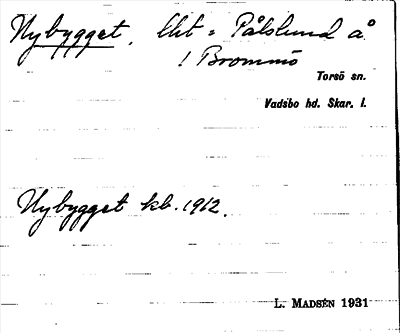 Nybygget, lht = Pålslund å
! Brommö
Torsö sn.
Vadsbo hd. Skar. l.
Nybygget kb. 1912.
L. MADSÉN 1931